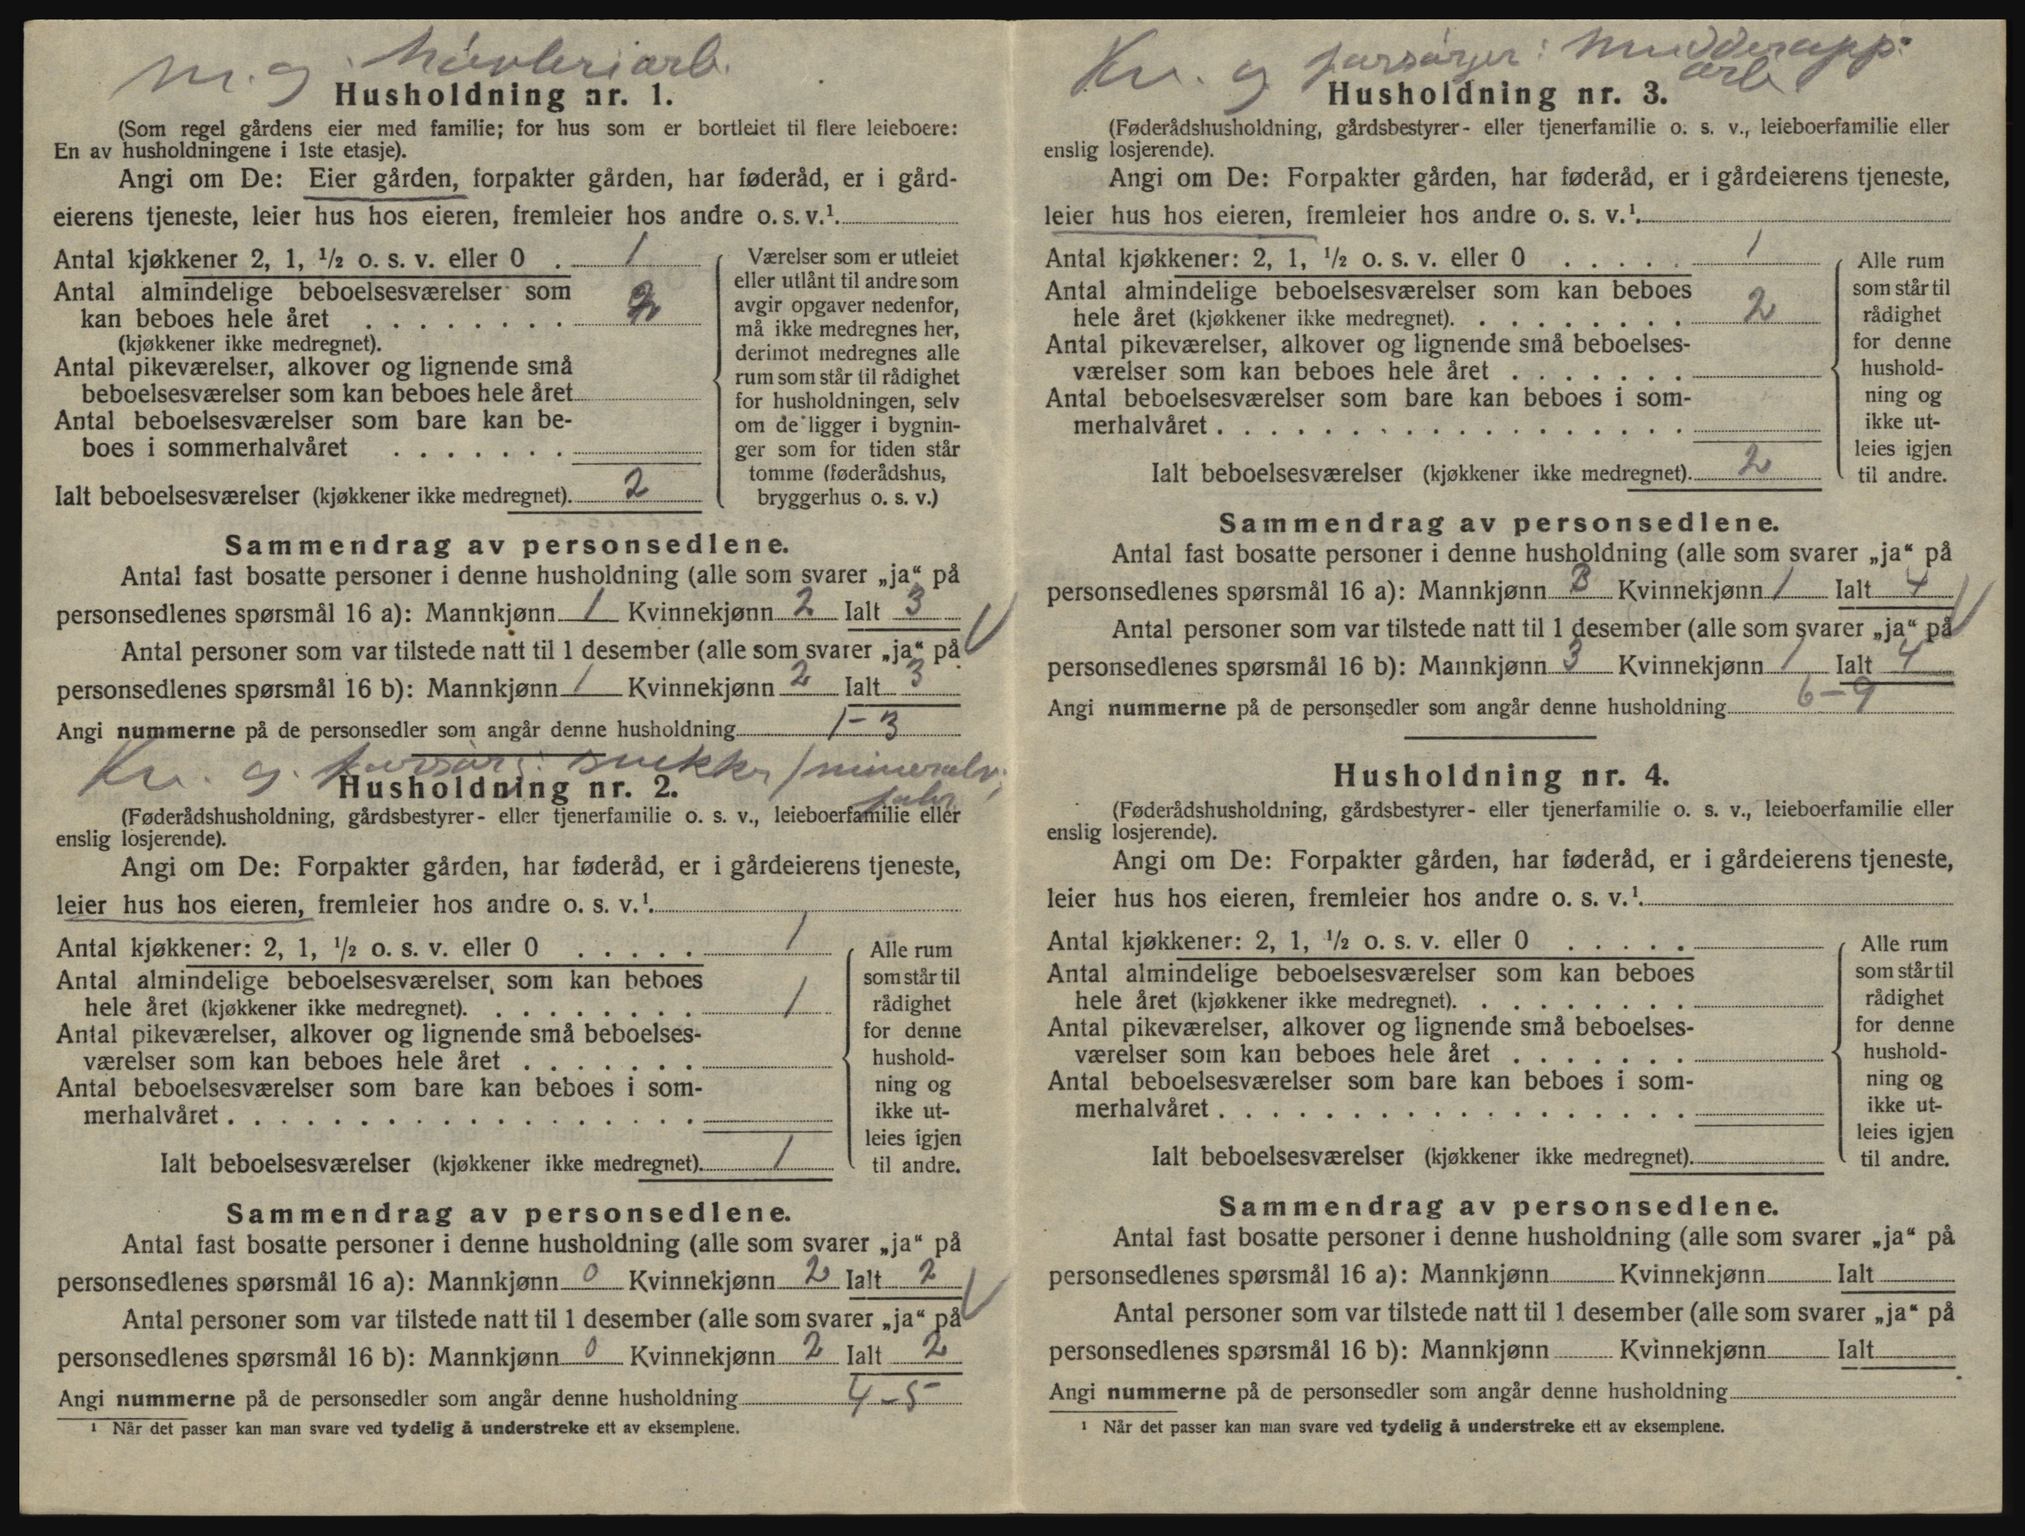 m. g. høvleriarb.
Husholdning nr. 1.
(Som regel gårdens eier med familie; for hus som er bortleiet til flere leieboere:
En av husholdningene i 1ste etasje).
Angi om De: Eier gården, forpakter gården, har føderåd, er i gård-
eierens tjeneste, leier hus hos eieren, fremleier hos andre o. s. v.¹.
Antal kjøkkener 2, 1, ½ o. s. v. eller 0 . 1
Antal almindelige beboelsesværelser som
kan beboes hele året . . . . . . . . 2
(kjøkkener ikke medregnet).
Antal pikeværelser, alkover og lignende små
beboelsesværelser som kan beboes hele året
Antal beboelsesværelser som bare kan be-
boes i sommerhalvåret . . . . . . .
Ialt beboelsesværelser (kjøkkener ikke medregnet). 2
Værelser som er utleiet
eller utlånt til andre som
avgir opgaver nedenfor,
må ikke medregnes her,
derimot medregnes alle
rum som står til rådighet
for husholdningen, selv
om de ligger i bygnin-
ger som for tiden står
tomme (føderådshus,
bryggerhus o. s. v.)
Sammendrag av personsedlene.
Antal fast bosatte personer i denne husholdning (alle som svarer „ja“ på
personsedlenes spørsmål 16 a): Mannkjønn 1 Kvinnekjønn 2 Ialt 3
Antal personer som var tilstede natt til 1 desember (alle som svarer „ja“ på
personsedlenes spørsmål 16 b): Mannkjønn 1 Kvinnekjønn 2 Ialt 3
Angi nummerne på de personsedler som angår denne husholdning 1-3
Kv. g. forsørg: snekker / mineralv.
fabr.
Husholdning nr. 2.
(Føderådshusholdning, gårdsbestyrer- eller tjenerfamilie o. s. v., leieboerfamilie eller
enslig losjerende).
Angi om De: Forpakter gården, har føderåd, er i gårdeierens tjeneste,
leier hus hos eieren, fremleier hos andre o. s. v.¹.
Antal kjøkkener: 2, 1, ½ o. s. v. eller 0 . . . . . 1
Antal almindelige beboelsesværelser, som kan beboes
hele året (kjøkkener ikke medregnet). . . . . . . . . 1
Antal pikeværelser, alkover og lignende små beboelses-
værelser som kan beboes hele året . . . . . . .
Antal beboelsesværelser som bare kan beboes i som-
merhalvåret . . . . . . . . . . . . . . . . . .
Ialt beboelsesværelser (kjøkkener ikke medregnet). 1
Alle rum
som står til
rådighet
for denne
hushold-
ning og
ikke ut-
leies igjen
til andre.
Sammendrag av personsedlene.
Antal fast bosatte personer i denne husholdning (alle som svarer „ja“ på
personsedlenes spørsmål 16 a): Mannkjønn 0 Kvinnekjønn 2 Ialt 2
Antal personer som var tilstede natt til 1 desember (alle som svarer „ja“ på
personsedlenes spørsmål 16 b): Mannkjønn 0 Kvinnekjønn 2 Ialt 2
Angi nummerne på de personsedler som angår denne husholdning 4-5
¹ Når det passer kan man svare ved tydelig å understreke ett av eksemplene.
Kv. g forsørger: Mudderapp.
arb.
Husholdning nr. 3.
(Føderådshusholdning, gårdsbestyrer- eller tjenerfamilie o. s. v., leieboerfamilie eller
enslig losjerende).
Angi om De: Forpakter gården, har føderåd, er i gårdeierens tjeneste,
leier hus hos eieren, fremleier hos andre o. s. v.¹.
Antal kjøkkener: 2, 1, ½ o. s. v. eller 0 . . . . . 1
Antal almindelige beboelsesværelser som kan beboes
hele året (kjøkkener ikke medregnet). . . . . . . . . 2
Antal pikeværelser, alkover og lignende små beboelses-
værelser som kan beboes hele året . . . . . . .
Antal beboelsesværelser som bare kan beboes i som-
merhalvåret . . . . . . . . . . . . . . . . . .
Ialt beboelsesværelser (kjøkkener ikke medregnet). 2
Alle rum
som står til
rådighet
for denne
hushold-
ning og
ikke ut-
leies igjen
til andre.
Sammendrag av personsedlene.
Antal fast bosatte personer i denne husholdning (alle som svarer „ja“ på
personsedlenes spørsmål 16 a): Mannkjønn 3 Kvinnekjønn 1 Ialt 4
Antal personer som var tilstede natt til 1 desember (alle som svarer „ja“ på
personsedlenes spørsmål 16 b): Mannkjønn 3 Kvinnekjønn 1 Ialt 4
Angi nummerne på de personsedler som angår denne husholdning 6-9
Husholdning nr. 4.
(Føderådshusholdning, gårdsbestyrer- eller tjenerfamilie o. s. v., leieboerfamilie eller
enslig losjerende).
Angi om De: Forpakter gården, har føderåd, er i gårdeierens tjeneste,
leier hus hos eieren, fremleier hos andre o. s. v.¹.
Antal kjøkkener: 2, 1, ½ o. s. v. eller 0 . . . . .
Antal almindelige beboelsesværelser som kan beboes
hele året (kjøkkener ikke medregnet). . . . . . . . .
Antal pikeværelser, alkover og lignende små beboelses-
værelser som kan beboes hele året . . . . . . .
Antal beboelsesværelser som bare kan beboes i som-
merhalvåret . . . . . . . . . . . . . . . . . .
Ialt beboelsesværelser (kjøkkener ikke medregnet).
Alle rum
som står til
rådighet
for denne
hushold-
ning og
ikke ut-
leies igjen
til andre.
Sammendrag av personsedlene.
Antal fast bosatte personer i denne husholdning (alle som svarer „ja“ på
personsedlenes spørsmål 16 a): Mannkjønn Kvinnekjønn Ialt
Antal personer som var tilstede natt til 1 desember (alle som svarer „ja“ på
personsedlenes spørsmål 16 b): Mannkjønn Kvinnekjønn Ialt
Angi nummerne på de personsedler som angår denne husholdning
¹ Når det passer kan man svare ved tydelig å understreke ett av eksemplene.